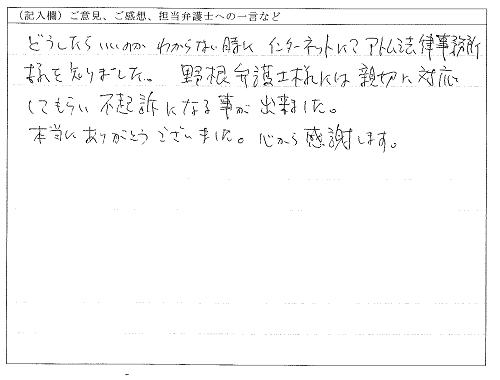 （記入欄）ご意見、ご感想、担当弁護士への一言など
どうしたらいいのか わからない時に インターネットにて アトム法律事務所
様を知りました。 野根弁護士様には 親切に対応
してもらい 不起訴になる事が出来ました。
本当に ありがとうございました。 心から感謝します。